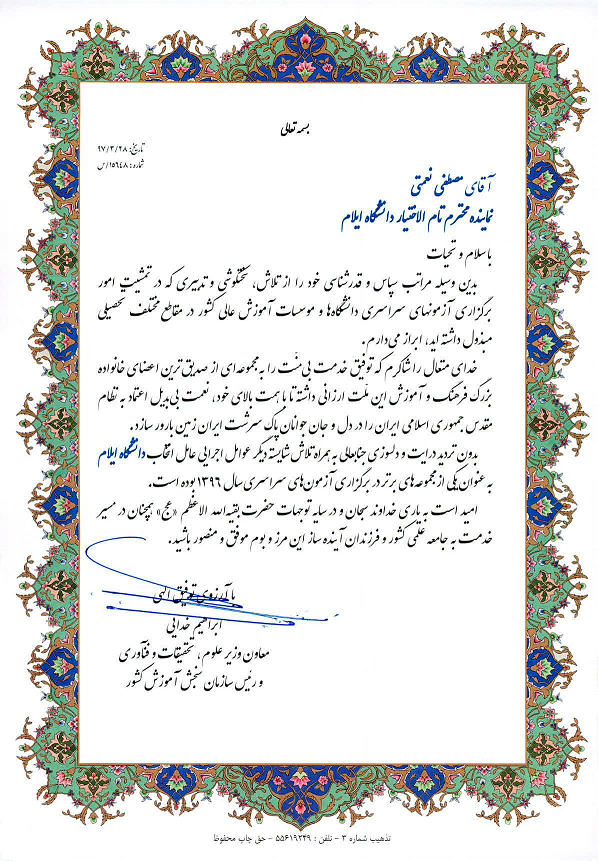 بسمه تعالی
تاریخ: ۹۷/۳/۲۸
شماره: ۱۵۶۴۸/س
آقای مصطفی نعمتی
نماینده محترم تام الاختیار دانشگاه ایلام
با سلام و تحیات
بدین وسیله مراتب سپاس و قدرشناسی خود را از تلاش، سختکوشی و تدبیری که در تمشیت امور
برگزاری آزمونهای سراسری دانشگاه‌ها و موسسات آموزش عالی کشور در مقاطع مختلف تحصیلی
مبذول داشته اید، ابراز می‌دارم.
خدای متعال را شاکرم که توفیق خدمت بی‌منّت را به مجموعه‌ای از صدیق ترین اعضای خانواده
بزرگ فرهنگ و آموزش این ملّت ارزانی داشته تا با همت بالای خود، نعمت بی‌بدیل اعتماد به نظام
مقدس جمهوری اسلامی ایران را در دل و جان جوانان پاک سرشت ایران زمین بارور سازد.
بدون تردید درایت و دلسوزی جنابعالی به همراه تلاش شایسته دیگر عوامل اجرایی عامل انتخاب دانشگاه ایلام
به عنوان یکی از مجموعه‌های برتر در برگزاری آزمون‌های سراسری سال ۱۳۹۶ بوده است.
امید است به یاری خداوند سبحان و در سایه توجهات حضرت بقیه‌الله الاعظم «عج» همچنان در مسیر
خدمت به جامعه علمی کشور و فرزندان آینده ساز این مرز و بوم موفق و منصور باشید.
با آرزوی توفیق الهی
ابراهیم خدایی
معاون وزیر علوم، تحقیقات و فنّاوری
و رئیس سازمان سنجش آموزش کشور
تذهیب شماره ۳ - تلفن : ۵۵۶۱۹۲۴۹ - حق چاپ محفوظ